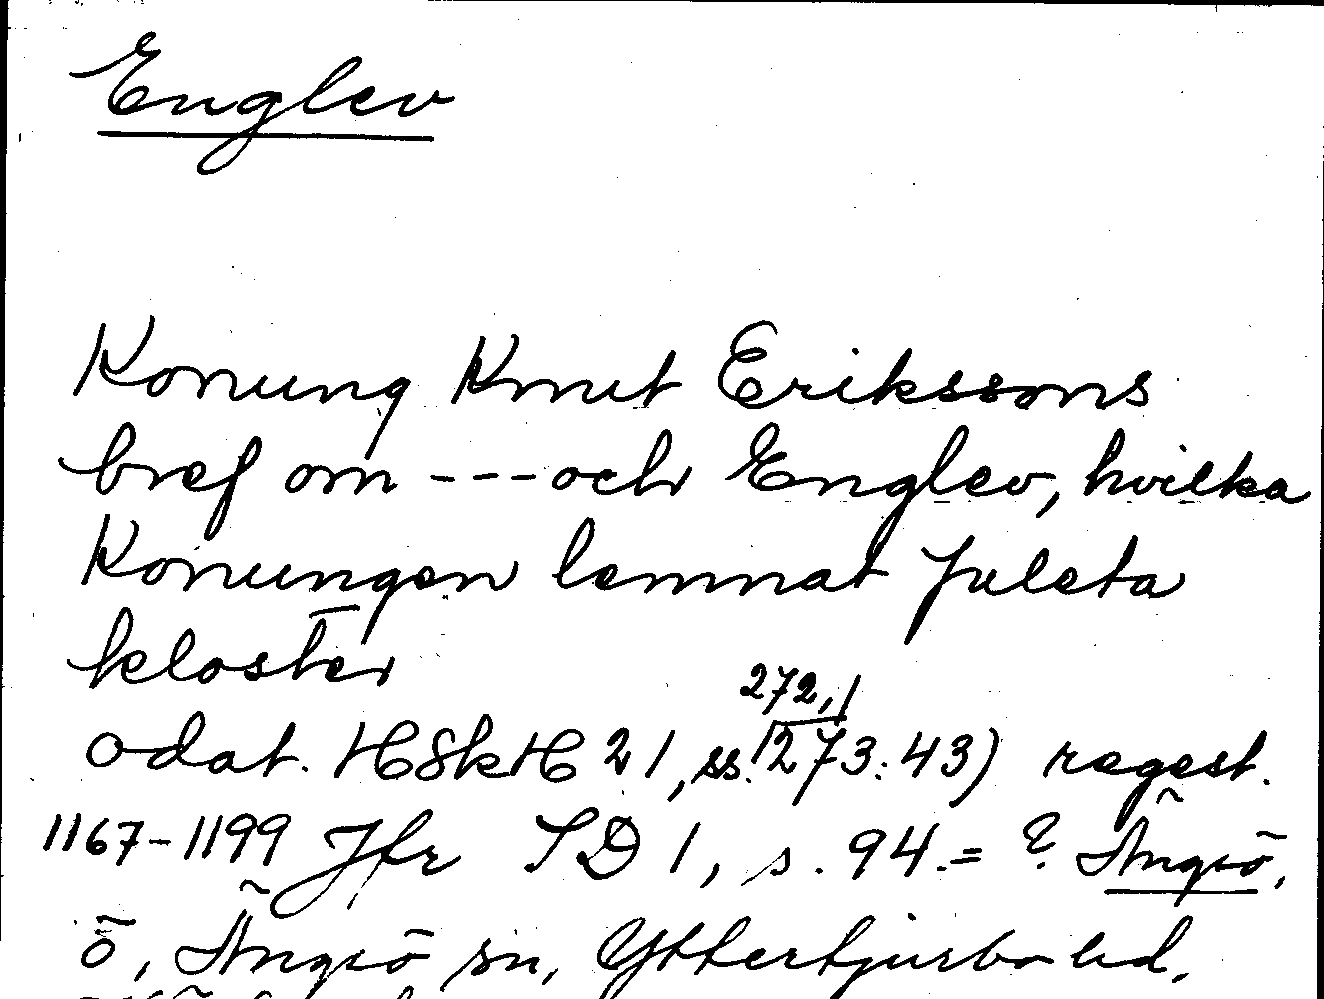 Englev
Konung Knut Erikssons
bref om --- och Englev, hvilka
Konungen lemnat Juleta
kloster
272,1
odat. HSkH 21, ss. 273:43) regest.
1167-1199 Jfr SD 1, s. 94. = ? Ängsö,
ö, Ängsö sn, Yttertjurbo hd,